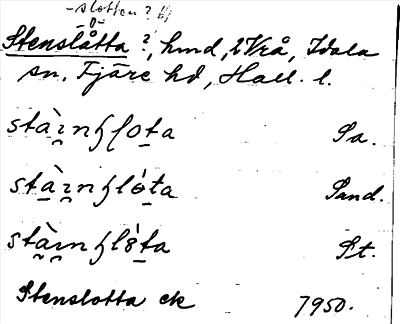 -slotten?
-o-
Stenslåtta ?, hmd, 2 Vrå, Idala
sn, Fjäre hd, Hall. l.
stàınslo̱ta Sa.
stàınslóta Sand.
stàınslóta St.
Stenslotta ek 7950.